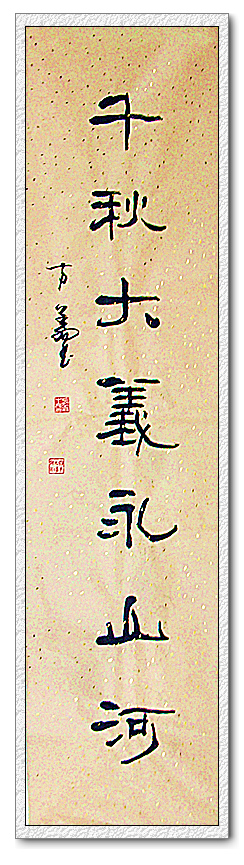 千秋大義永山河